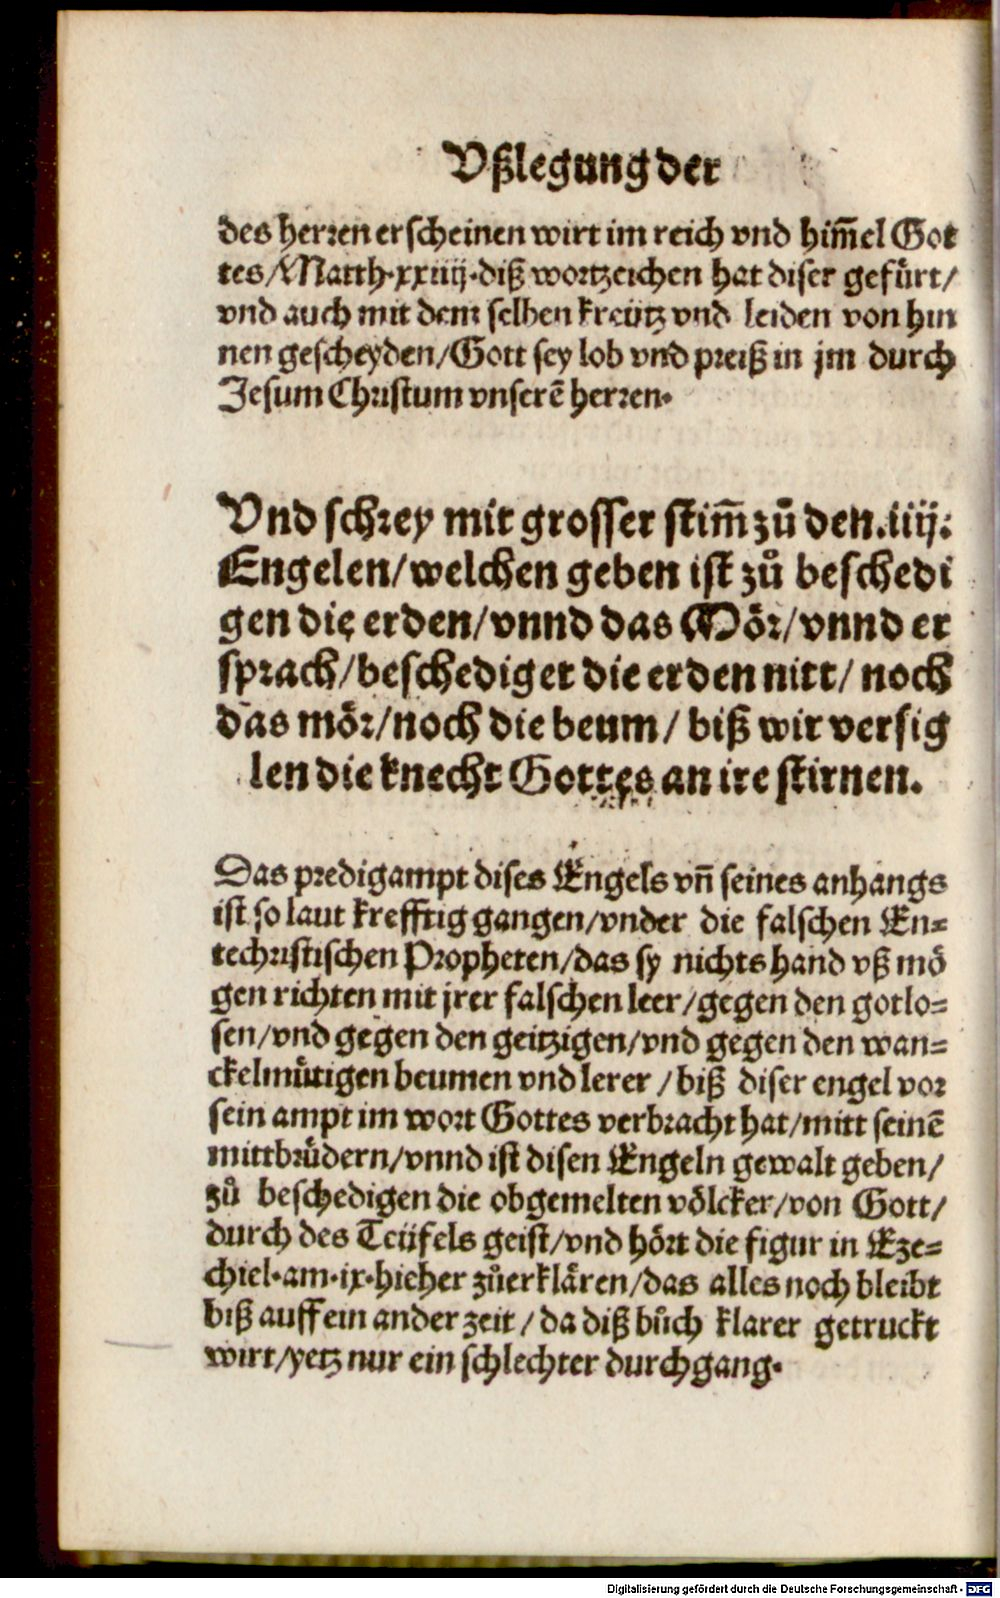 Vßlegung der
des herren erscheinen wirt im reich vnd him̄el Got
tes/Matth·xxiiij·diß wortzeichen hat diser gefuͤrt/
vnd auch mit dem selben kreütz vnd leiden von hin
nen gescheyden/Gott sey lob vnd preiß in jm durch
Jesum Christum vnserē herren·
Vnd schrey mit grosser stim̄ zuͦ den.iiij.
Engelen/welchen geben ist zuͦ beschedi
gen die erden/vnnd das Moͤr/vnnd er
sprach/beschediget die erden nitt/ noch
das moͤr/noch die beum/ biß wir versig
len die knecht Gottes an ire stirnen.
Das predigampt dises Engels vn̄ seines anhangs
ist so laut krefftig gangen/vnder die falschen En⸗
techristischen Propheten/das sy nichts hand vß moͤ
gen richten mit jrer falschen leer/gegen den gotlo⸗
sen/vnd gegen den geitzigen/vnd gegen den wan⸗
ckelmuͤtigen beumen vnd lerer /biß diser engel vor
sein ampt im wort Gottes verbracht hat/mitt seinē
mittbruͤdern/vnnd ist disen Engeln gewalt geben/
zuͦ beschedigen die obgemelten voͤlcker/von Gott/
durch des Teüfels geist/vnd hoͤrt die figur in Eze⸗
chiel·am·ix·hieher zuͦerklaͤren/das alles noch bleibt
biß auff ein ander zeit/da diß buͦch klarer getruckt
wirt/yetz nur ein schlechter durchgang·
Digitalisierung gefördert durch die Deutsche Forschungsgemeinschaft - DFG